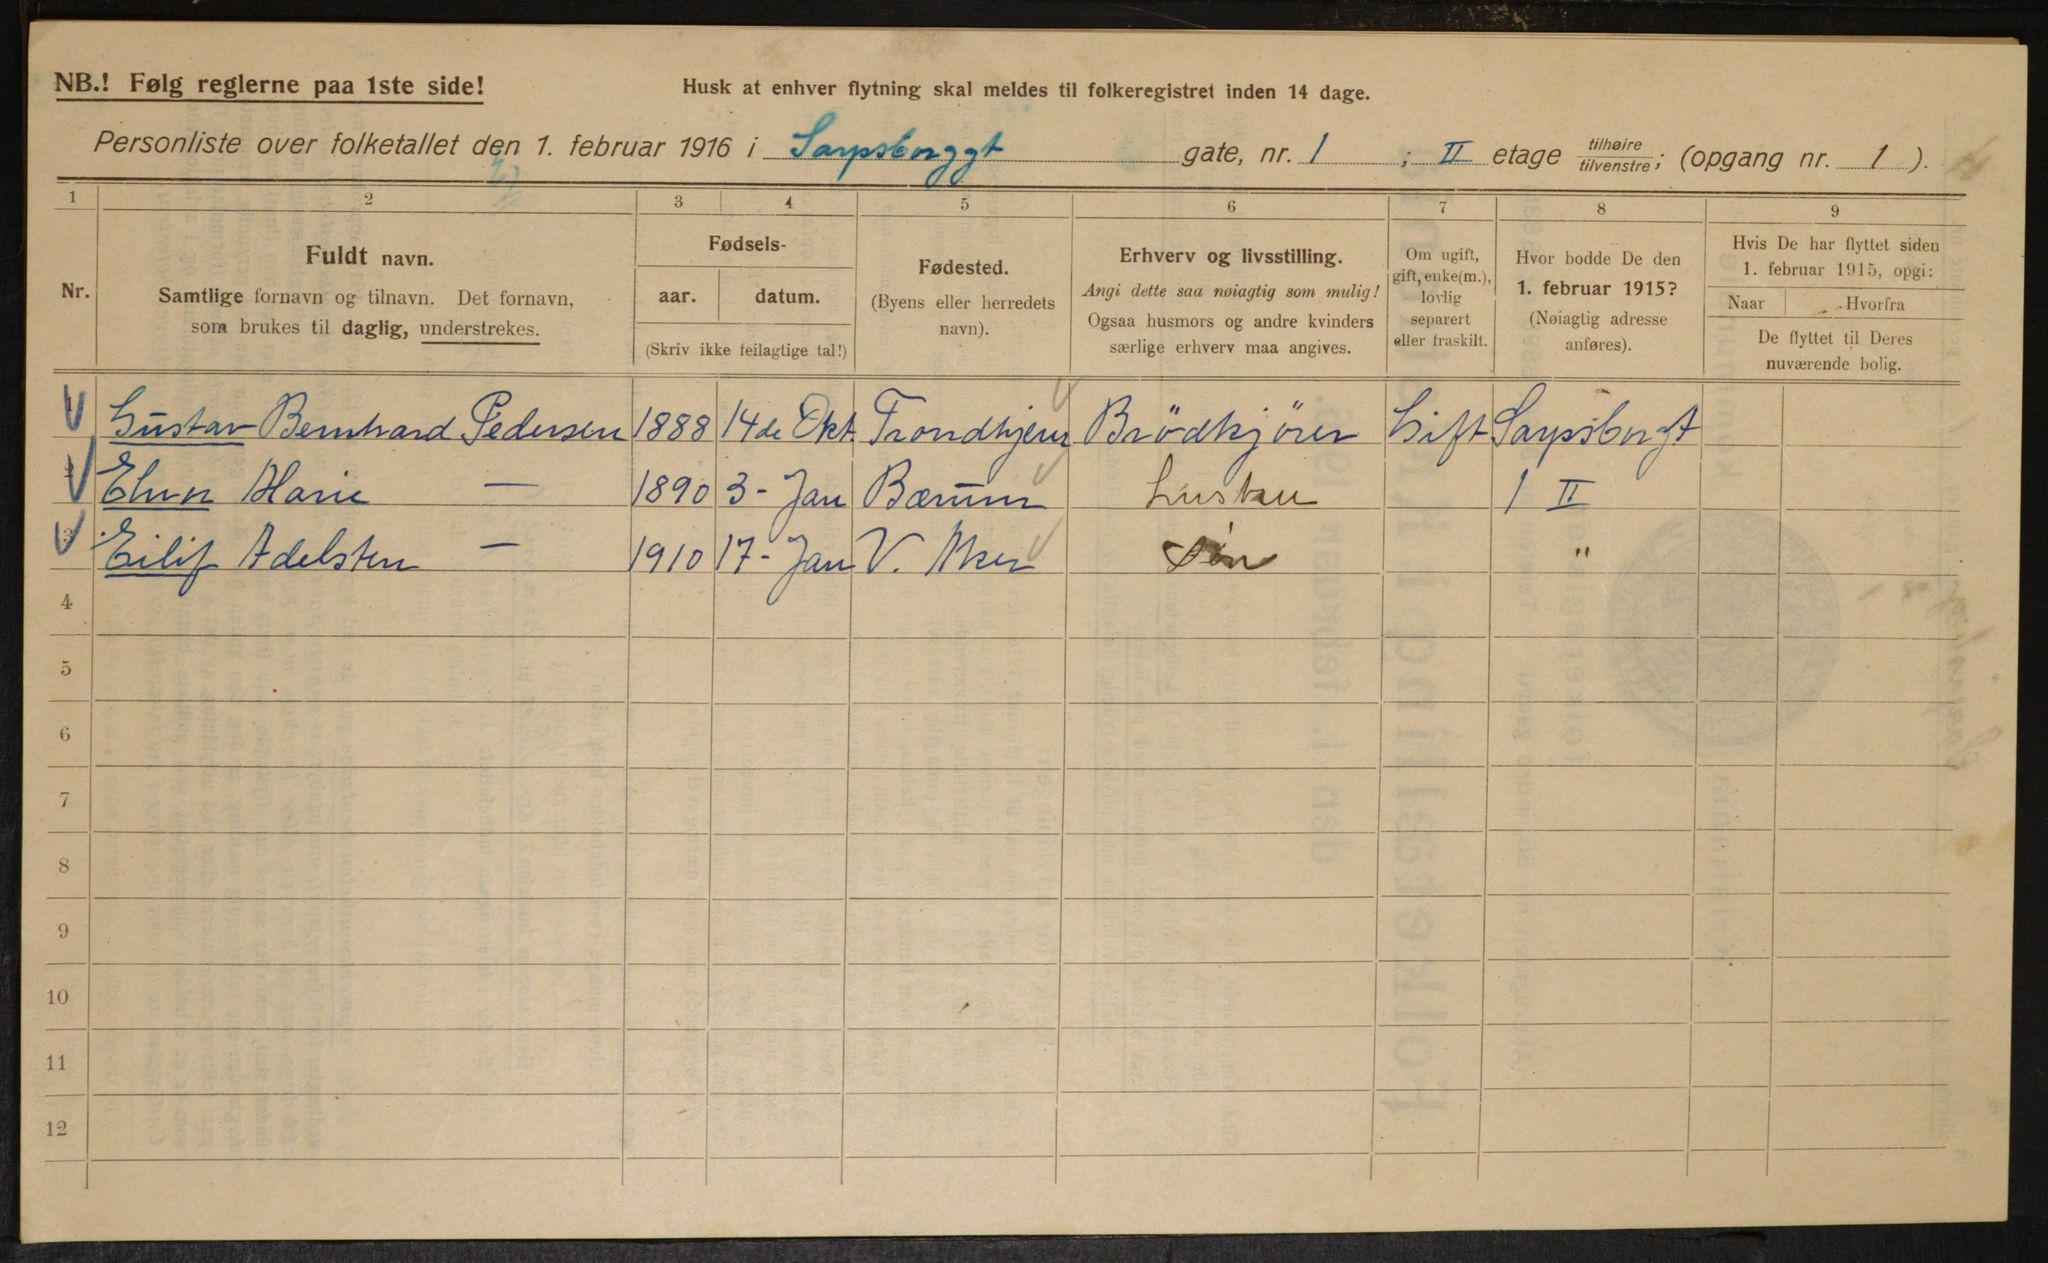 NB.! Følg reglerne paa 1ste side!
Husk at enhver flytning skal meldes til folkeregistret inden 14 dage.
Personliste over folketallet den 1. februar 1916 i Sarpsborggt gate, nr. 1 ; II etage tilhøire tilvenstre; (opgang nr. 1 ).
1 2 3 4 5 6 7 8 9
Nr.
Fuldt navn.
Samtlige fornavn og tilnavn. Det fornavn,
som brukes til daglig, understrekes.
Fødsels-
aar. datum.
(Skriv ikke feilagtige tal!)
Fødested.
(Byens eller herredets
navn).
Erhverv og livsstilling.
Angi dette saa nøiagtig som mulig!
Ogsaa husmors og andre kvinders
særlige erhverv maa angives.
Om ugift,
gift, enke(m.),
lovlig
separert
eller fraskilt.
Hvor bodde De den
1. februar 1915?
(Nøiagtig adresse
anføres).
Hvis De har flyttet siden
1. februar 1915, opgi:
Naar Hvorfra
De flyttet til Deres
nuværende bolig.
1 Gustav Bernhard Pedersen 1888 14de Okt. Trondhjem Brödkjörer Gift Sarpsborgt
Marie — 1890 3 - Jan Bærum 1 II
3 Eilif Adelsten — 1910 17 - Jan V. Aker Søn "
4
5
6
7
8
9
10
11
12